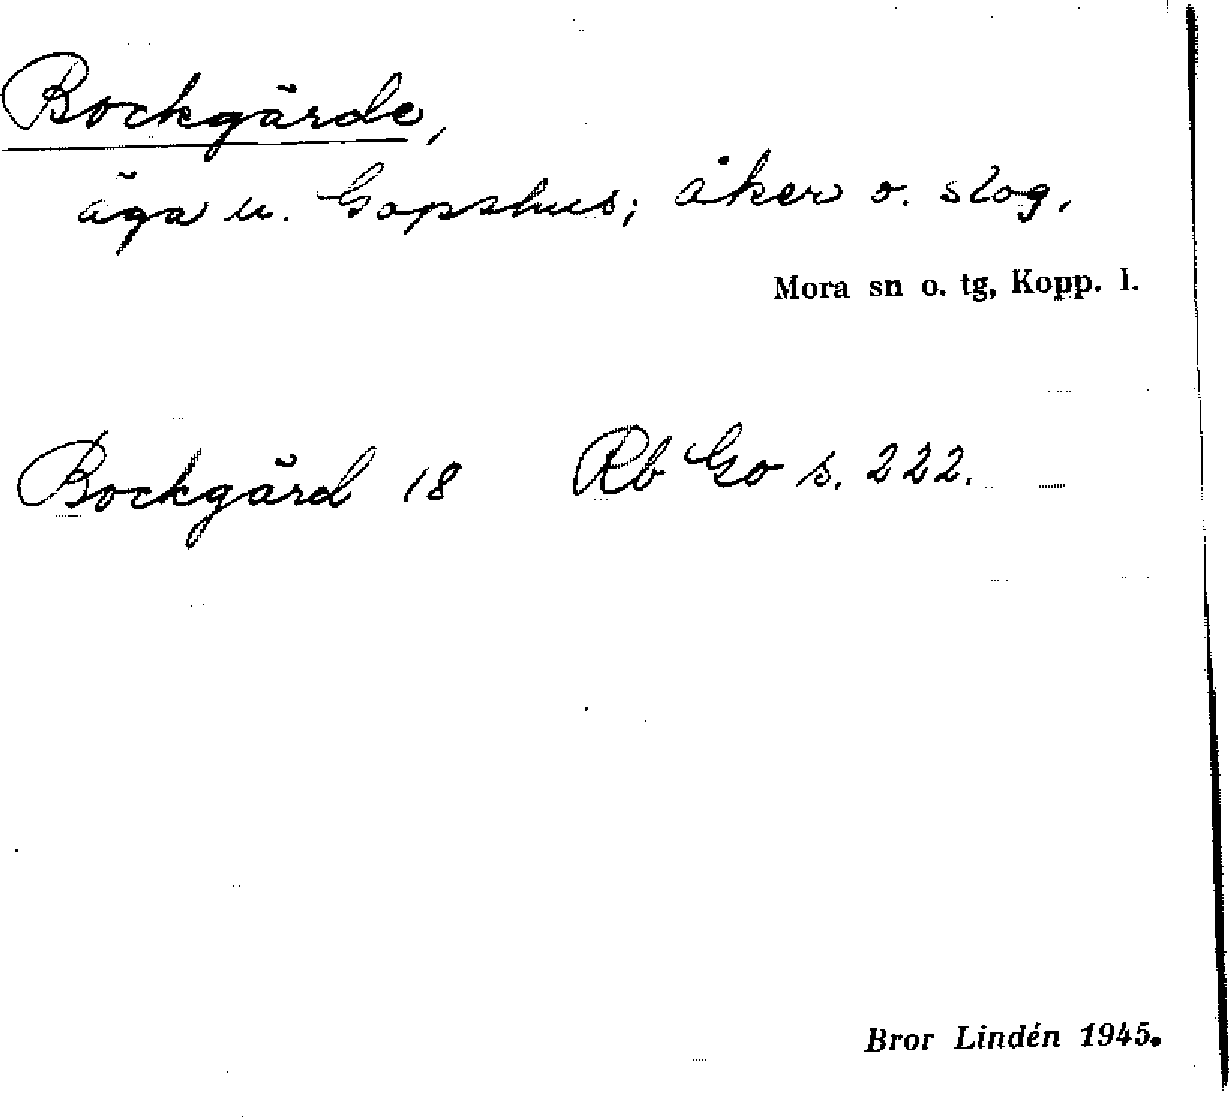 Bockgärde,
äga u. Gopshus; åker o. slog.
Mora sn o. tg, Kopp. l.
Bockgärd 18 Rb Go s. 222.
Bror Lindén 1945.